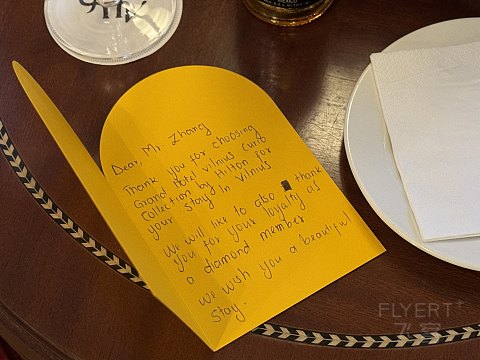 Dear, Mr. Zhang
Thank you for choosing
Grand Hotel Vilnius Curio
Collection by Hilton for
your stayd in Vilnius
We will like to also thank
you for your loyalty as
a diamond member
we wish you a beautiful
stay.
MEXICO
FLYERT+
飞客